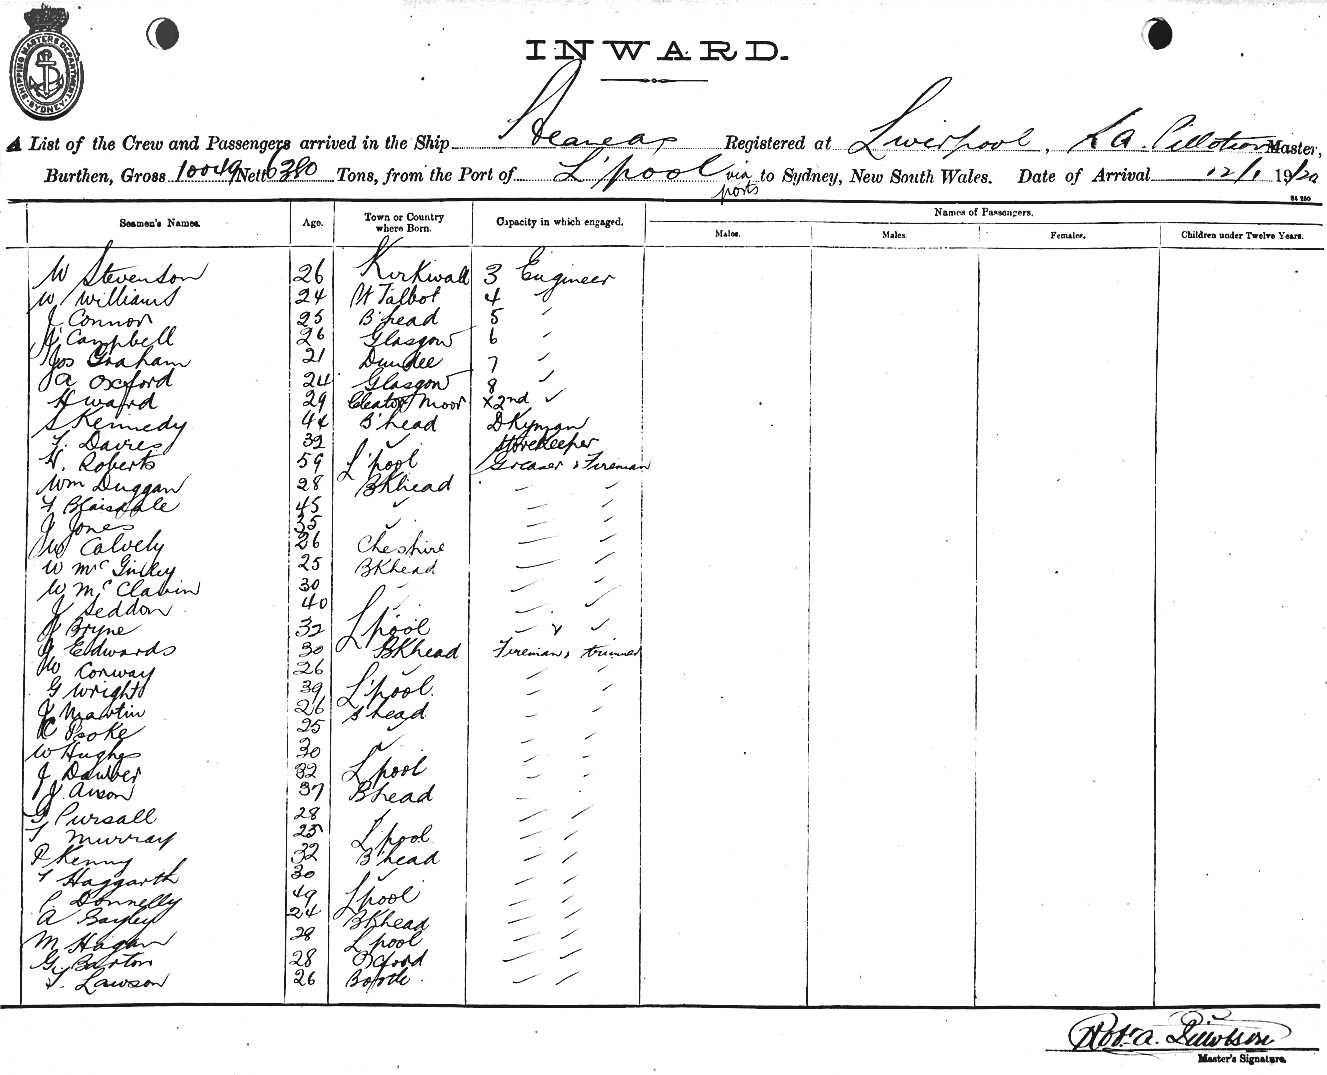 SHIPPING MASTERS DEPARTMENT SYDNEY
INWARD.
A List of the Crew and Passengers arrived in the Ship Aeneas Registered at Liverpool, Master,
Burthen, Gross 10049 Nett 6380 Tons, from the Port of L'pool via ports to Sydney, New South Wales. Date of Arrival 12/1 19/20
Seamen's Names. Age. Town or Country where Born. Capacity in which engaged. Names of Passengers.
Males. Males. Females. Children under Twelve Years.
W Stevenson 26 Kirkwall 3 Engineer
W Williams 24 Pt Talbot 4 "
J Connor 25 B'head 5 "
Campbell 26 Glasgow 6 "
Jos Graham 21 Dundee 7 "
A Oxford 24 Glasgow 8 "
H Ward 29 Cleator Moor x2nd "
S Kennedy 44 B'head DKyman
T. Davies 32 " Storekeeper
H. Roberts 59 L'pool Greaser & Fireman
Wm Duggan 28 BKhead " "
T Blaisdale 45 " " "
J Jones 35 " " "
W Calvely 26 Cheshire " "
W Mc 25 BKhead " "
W Mc Clavin 30 " " "
J Seddon 40 " " "
Bryne 32 L'pool " "
J Edwards 30 BKhead Fireman & trimmer
W Conway 26 " " "
G Wright 39 L'pool. " "
J Martin 26 head " "
25 " " "
W Hughes 30 " " "
J Dawber 32 L'pool " "
J. 37 B'head " "
G Pursall 28 " " "
T Murray 25 L'pool " "
P Kenny 32 B'head " "
T Haggarth 30 " " "
C Donnelly 49 L'pool " "
A Bayley 24 BKhead " "
M Hagan 28 L'pool " "
G. Barton 28 Oxford " "
T. Lawson 26 Bootle. " "
Robt. A.
Master's Signature.